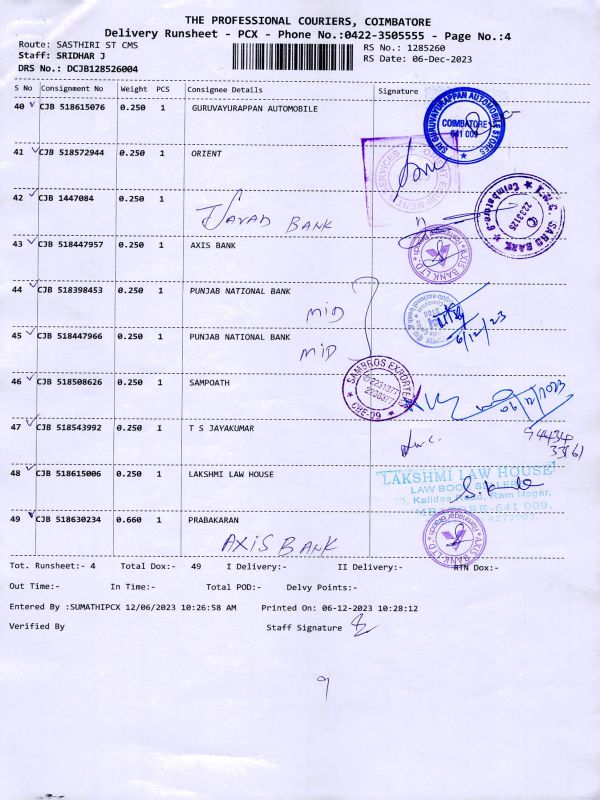 THE PROFESSIONAL COURIERS, COIMBATORE
Delivery Runsheet - PCX - Phone No.:0422-3505555 - Page No.:4
Route: SASTHIRI ST CMS
RS No.: 1285260
Staff: SRIDHAR J
RS Date: 06-Dec-2023
DRS No.: DCJB128526004
S No Consignment No Weight PCS Consignee Details Signature
40 CJB 518615076 0.250 1 GURUVAYURAPPAN AUTOMOBILE
SRI GURUVAYURAPPAN AUTOMOBILE STORES
COIMBATORE
641 009
41 CJB 518572944 0.250 1 ORIENT
42 CJB 1447084 0.250 1
BANK
2233125
43 CJB 518447957 0.250 1 AXIS BANK
AXIS BANK LTD
44 CJB 518398453 0.250 1 PUNJAB NATIONAL BANK
MID
6/12/23
45 CJB 518447966 0.250 1 PUNJAB NATIONAL BANK
MID
46 CJB 518508626 0.250 1 SAMPOATH
SAMBROS EXPORTER
CBE-09
06/12/2023
47 CJB 518543992 0.250 1 T S JAYAKUMAR
94434
33161
48 CJB 518615006 0.250 1 LAKSHMI LAW HOUSE
LAKSHMI LAW HOUSE
LAW BOOK SELLER
Kalidas Road, Ram Nagar,
641 009.
49 CJB 518630234 0.660 1 PRABAKARAN
AXIS BANK
AXIS BANK LTD
Tot. Runsheet:- 4 Total Dox:- 49 I Delivery:- II Delivery:- RTN Dox:-
Out Time:- In Time:- Total POD:- Delvy Points:-
Entered By :SUMATHIPCX 12/06/2023 10:26:58 AM Printed On: 06-12-2023 10:28:12
Verified By Staff Signature
9